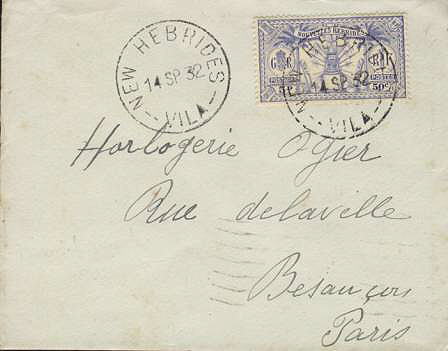 NEW HEBRIDES
14 SP 32
VILA
NOUVELLES HEBRIDES
G R
R F
POSTES
POSTES
50c
NEW HEBRIDES
14 SP 32
VILA
Horlogerie Ogier
Rue delaville
Besançon
Paris